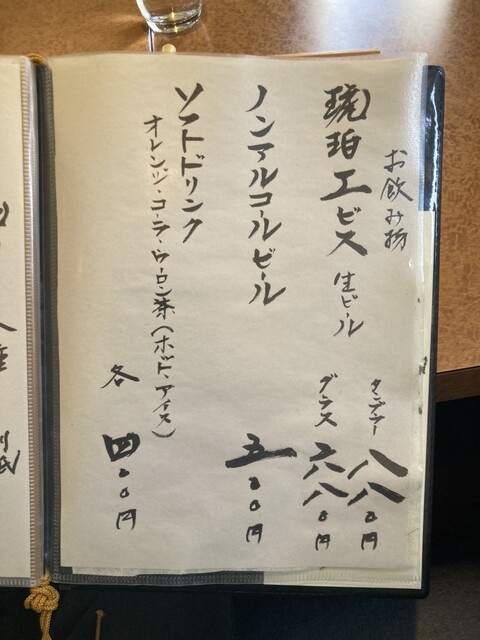 お飲み物
琥珀ヱビス 生ビール
タンブラー 八八〇円
グラス 六八〇円
ノンアルコールビール 五〇〇円
ソフトドリンク
オレンジ・コーラ・ウーロン茶(ホット、アイス)
各 四〇〇円